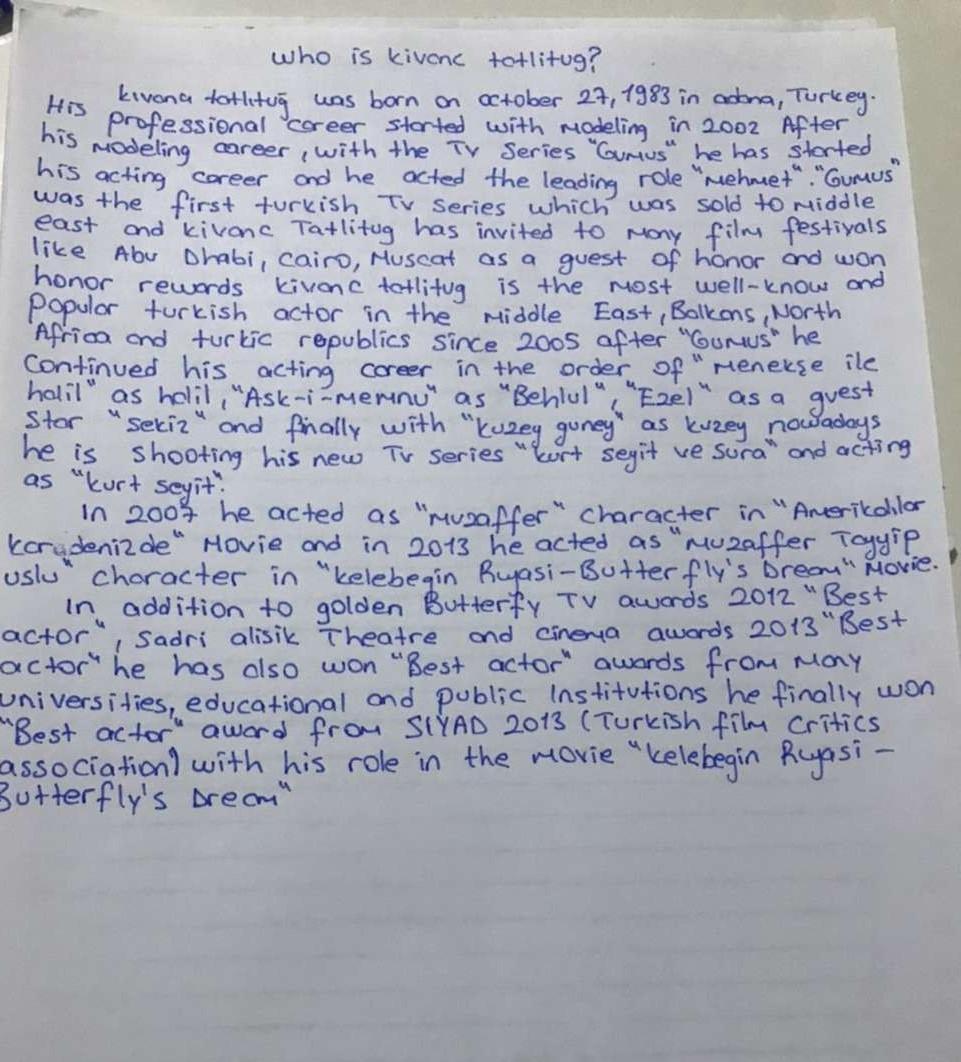 who is kivanc tatlitug?
kivanc tatlituğ was born on october 27, 1983 in adana, Turkey.
His professional career started with Modeling in 2002 After
his Modeling career, with the TV Series "Gumus" he has started
his acting career and he acted the leading role "Mehmet". "Gumus"
was the first turkish Tv series which was sold to Middle
east and kivanc Tatlitug has invited to Many film festivals
like Abu Dhabi, Cairo, Muscat as a guest of honor and won
honor rewards kivanc tatlitug is the most well-know and
Popular turkish actor in the Middle East, Balkans, North
Africa and turkic republics since 2005 after "Gumus" he
Continued his acting career in the order of "Menekşe ile
halil" as halil, "Ask-i-memnu" as "Behlul", "Ezel" as a guest
Star "Sekiz" and finally with "kuzey guney" as kuzey nowadays
he is shooting his new Tv series "kurt seyit ve Sura" and acting
as "kurt seyit".
In 2007 he acted as "Muzaffer" Character in "Amerikalilar
karadenizde" Movie and in 2013 he acted as "Muzaffer Tayyip
uslu" character in "kelebegin Ruyasi-Butterfly's Dream" Movie.
In addition to golden Butterfy TV awards 2012 "Best
actor", Sadri alisik Theatre and cinema awards 2013 "Best
actor" he has also won "Best actor" awards from Many
universities, educational and public Institutions he finally won
"Best actor" award from SIYAD 2013 (Turkish film Critics
association) with his role in the Movie "kelebegin Ruyasi -
Butterfly's Dream"